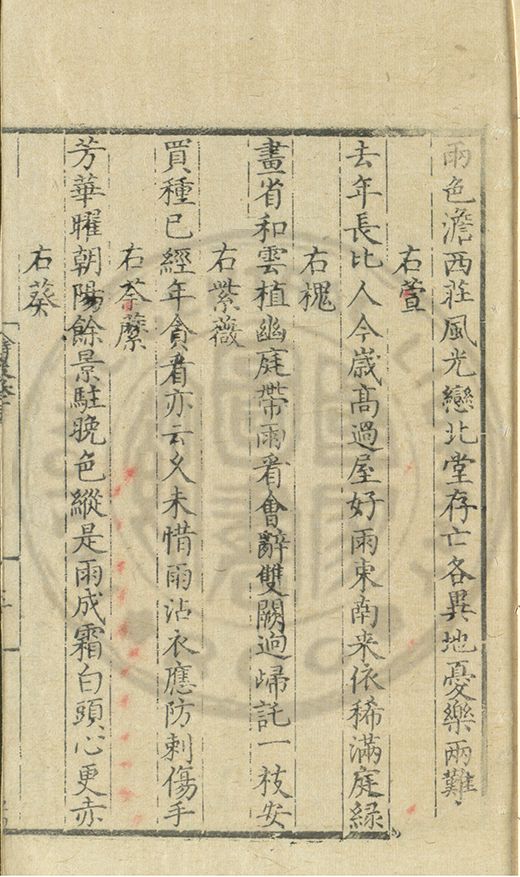 雨色澹西莊風光戀北堂存亡各異地憂樂兩難
右萱
去年長比人今歲高過屋好雨東南來依稀滿庭緑
右槐
畫省和雲植幽庭帶雨看會辭雙闕逈歸託一枝安
右紫薇
買種已經年貪看亦云久未惜雨沾衣應防刺傷手
右荼蘼
芳華曜朝陽餘景駐晚色縱是雨成霜白頭心更赤
右葵